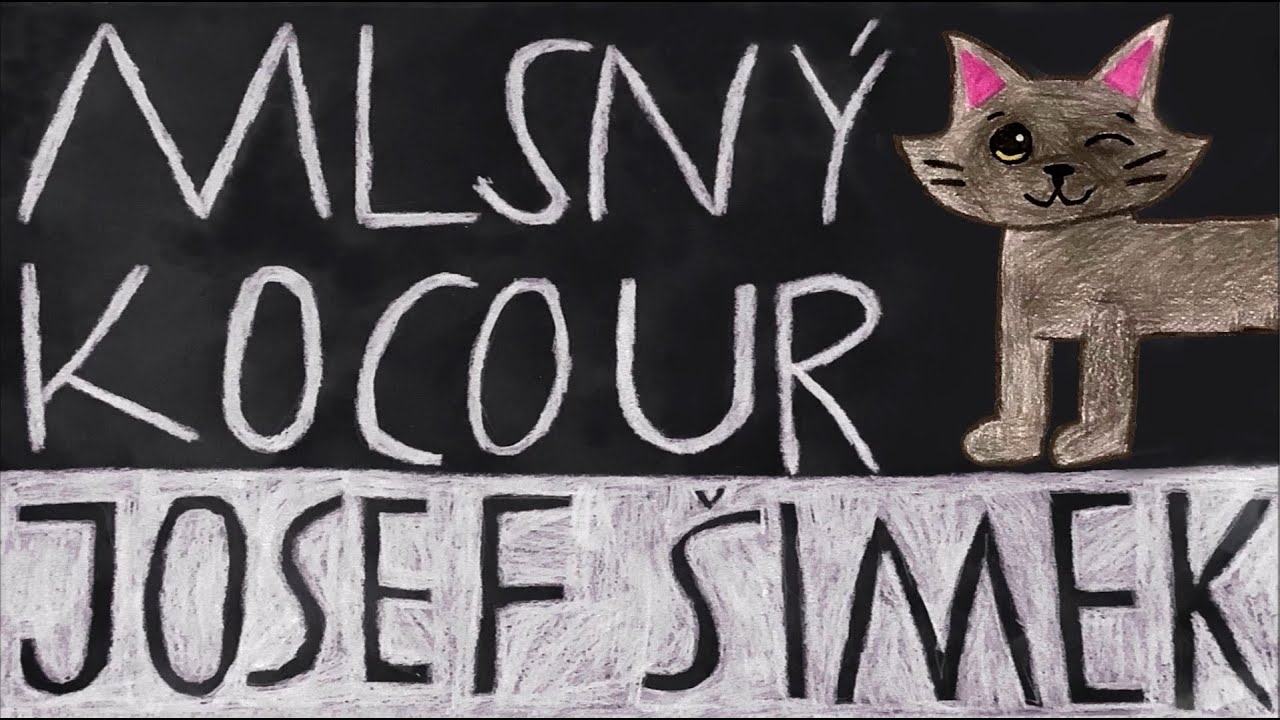 MLSNÝ
KOCOUR
JOSEF ŠIMEK